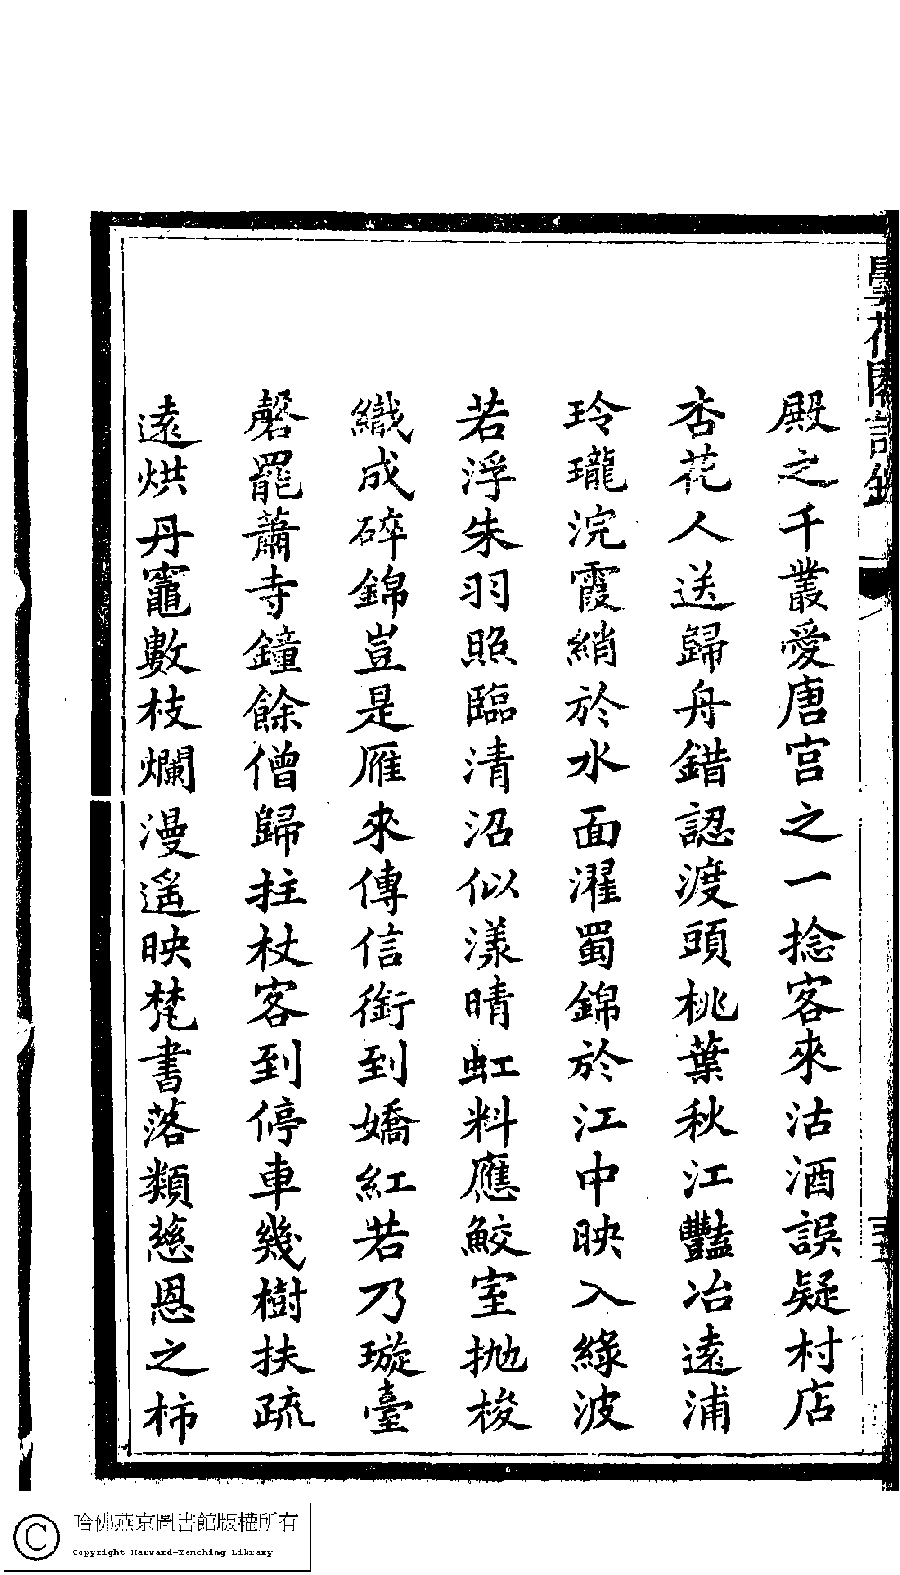 殿之千叢愛唐宮之一捻客來沽酒誤疑村店
杏花人送歸舟錯認渡頭桃葉秋江豔冶遠浦
玲瓏浣霞綃於水面濯蜀錦於江中映入綠波
若浮朱羽照臨清沼似漾晴虹料應鮫室拋梭
織成碎錦豈是雁來傳信銜到嬌紅若乃璇臺
磬罷蕭寺鐘餘僧歸拄杖客到停車幾樹扶疏
遠烘丹竈數枝爛漫遙映梵書落類慈恩之柿
哈佛燕京圖書館版權所有
Copyright Harvard-Yenching Library